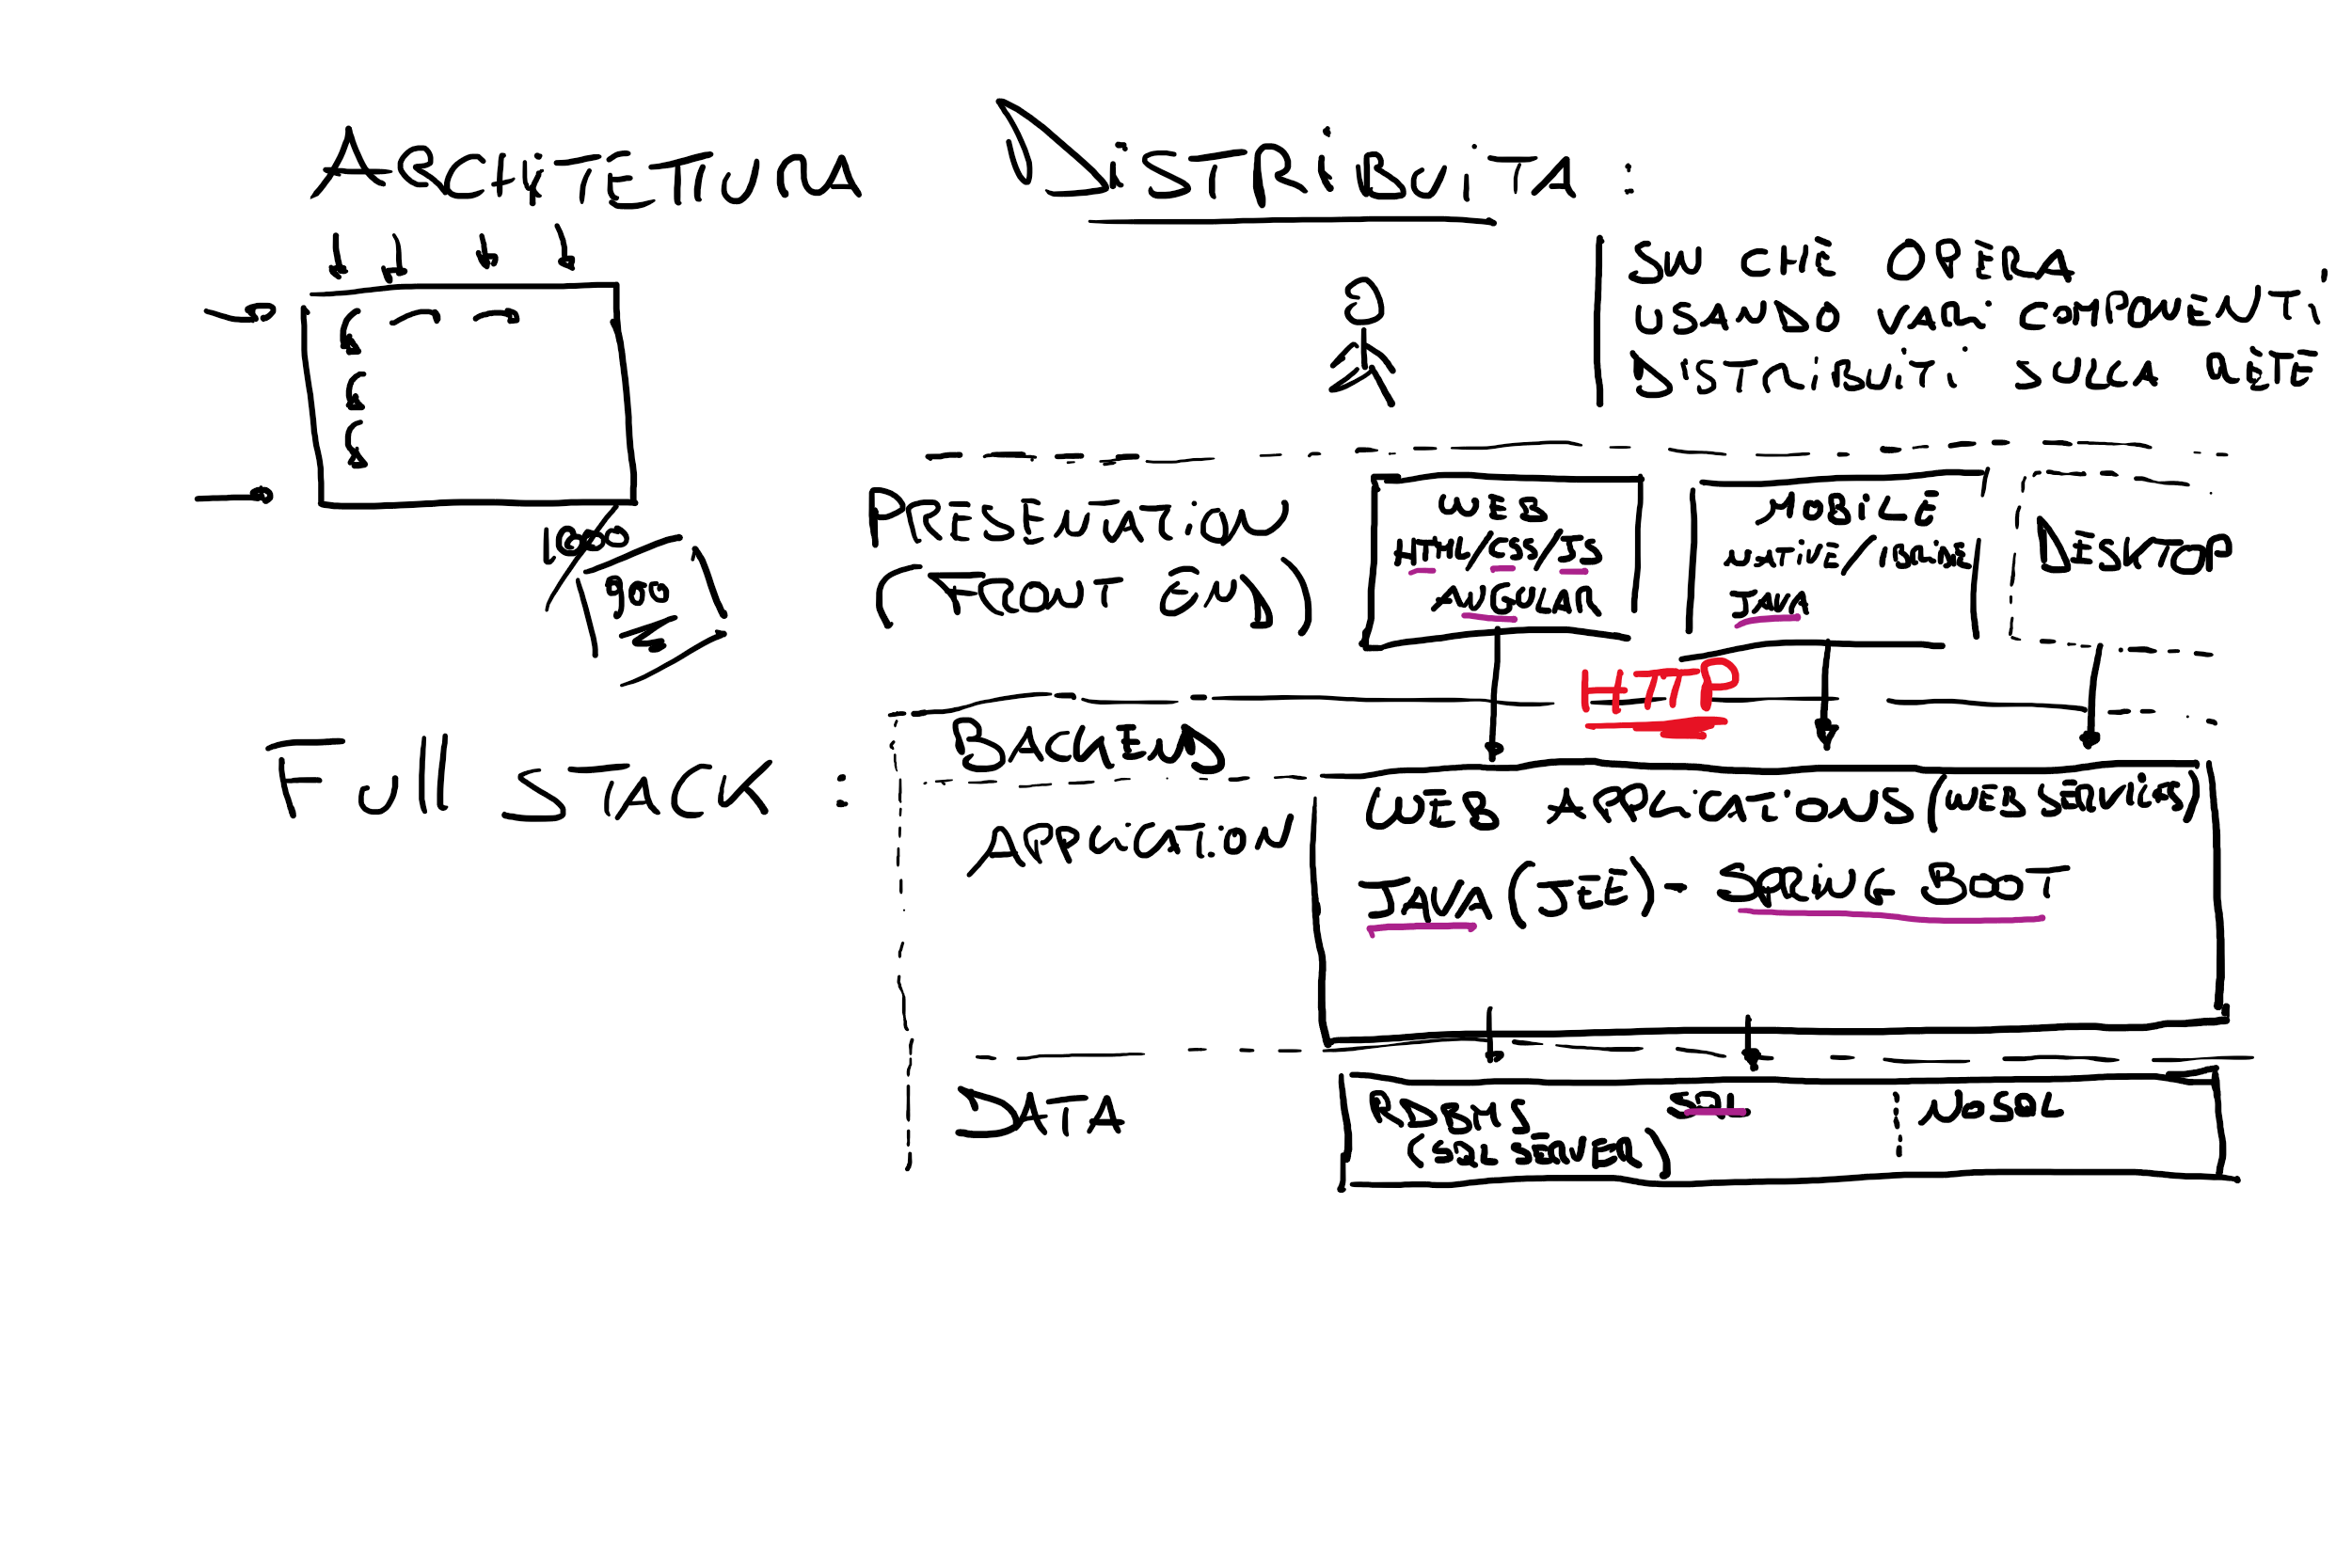 ARCHITETTURA DISTRIBUITA:
SW CHE OPERA
USANDO VARI COMPONENTI
DISTRIBUITI SULLA RETE
PRESENTATION
(FRONT END)
WEB
HTML/CSS/JS
ANGULAR
MOBILE
NATIVE/IBRIDE
JAVA
DESKTOP
1000
900
HTTP
FULL STACK:
BACKEND
APPLICATION
WEB APPLICATIONS (WEB SERVICES)
JAVA (JEE) - SPRING BOOT
DATA
RDBMS SQL
(SQL SERVER)
NoSQL